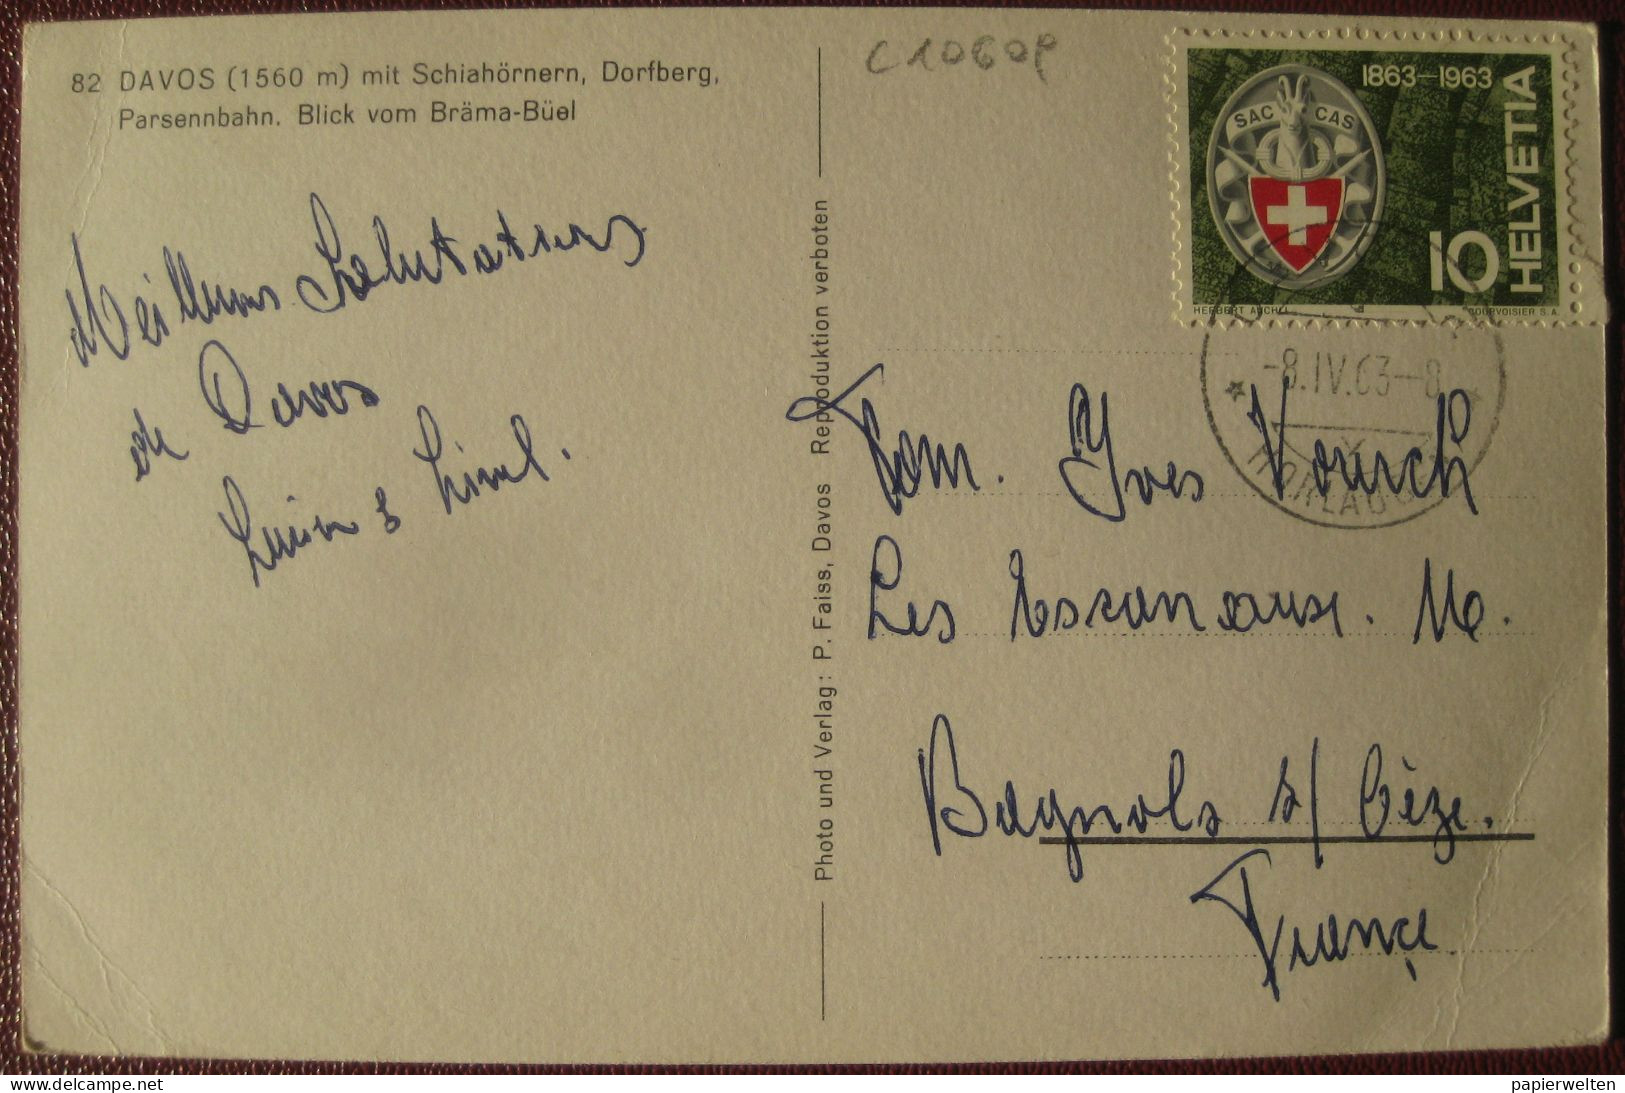 82 DAVOS (1560 m) mit Schiahörnern, Dorfberg,
Parsennbahn. Blick vom Bräma-Büel
Meilleures Salutations
de Davos
&
Photo und Verlag: P. Faiss, Davos Reproduktion verboten
C1060P
SAC CAS
1863–1963
HELVETIA
10
HERBERT AUCHLI
COURVOISIER S.A.
-8.IV.63-8
Fam. Yves Vourch
Les Escanaux. 16.
Bagnols s/ Cèze.
France
www.delcampe.net
papierwelten